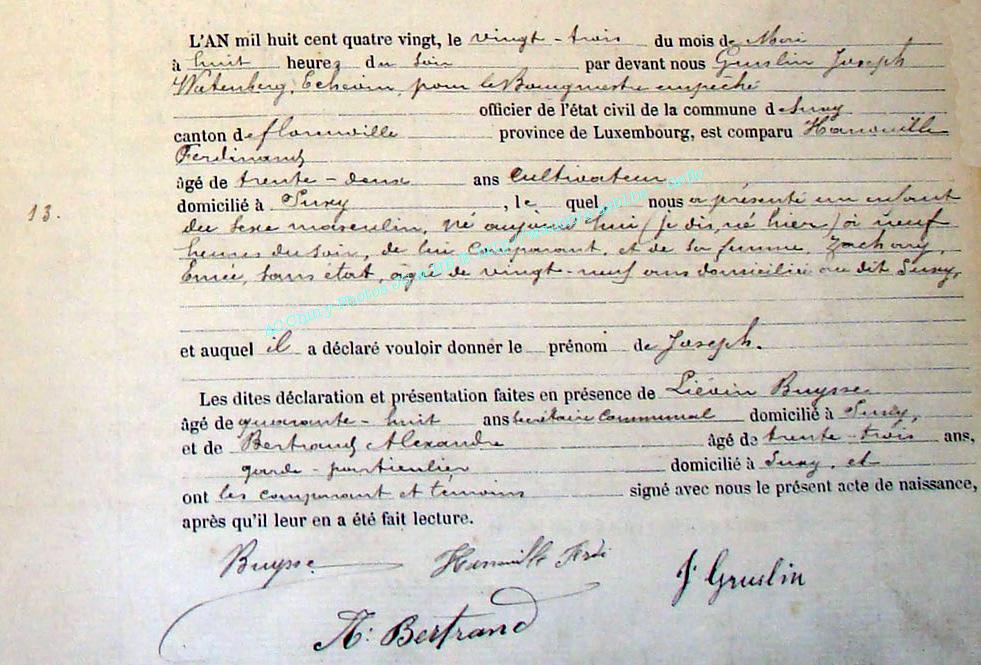 L'AN mil huit cent quatre vingt, le vingt-trois du mois de Mai
à huit heures du soir par devant nous Gruslin Joseph
Echevin, pour le Bourgmestre empêché
officier de l'état civil de la commune de Suxy
canton de florenville province de Luxembourg, est comparu Hanouille
Ferdinand
âgé de trente-deux ans Cultivateur
domicilié à Suxy, le quel nous a présenté un enfant
13.
du sexe masculin, né aujourd'hui (je dis, né hier) à neuf
heures du soir, de lui comparant, et de sa femme, Zachary,
sans état, âgée de vingt-neuf ans domiciliée au dit Suxy,
AC Chiny Photos
et auquel il a déclaré vouloir donner le prénom de Joseph.
Les dites déclaration et présentation faites en présence de Liévin Buysse
âgé de quarante-huit ans secrétaire communal domicilié à Suxy,
et de Bertrand Alexandre âgé de trente-trois ans,
garde-particulier domicilié à Suxy, et
ont les comparant et témoins signé avec nous le présent acte de naissance,
après qu'il leur en a été fait lecture.
Buysse Hanouille Ferdi J Gruslin
A: Bertrand